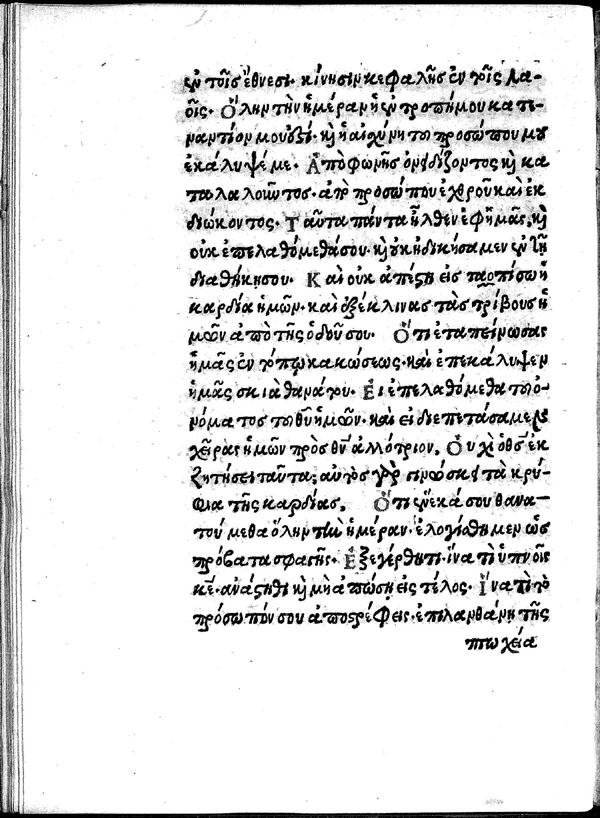 ἐν τοῖς ἔθνεσι· κίνησιν κεφαλῆς ἐν τοῖς λα-
οῖς. Ὅλην τὴν ἡμέραν ἡ ἐντροπή μου κατε-
ναντίον μου ἐστί· καὶ ἡ αἰσχύνη τοῦ προσώπου μου
ἐκάλυψέ με. Ἀπὸ φωνῆς ὀνειδίζοντος καὶ κα
ταλαλοῦντος· ἀπὸ προσώπου ἐχθροῦ καὶ ἐκ
διώκοντος. Ταῦτα πάντα ἦλθεν ἐφ' ἡμᾶς, καὶ
οὐκ ἐπελαθόμεθά σου· καὶ οὐκ ἠδικήσαμεν ἐν τῇ
διαθήκῃ σου. Καὶ οὐκ ἀπέστη εἰς τὰ ὀπίσω ἡ
καρδία ἡμῶν· καὶ ἐξέκλινας τὰς τρίβους ἡ
μῶν ἀπὸ τῆς ὁδοῦ σου. Ὅτι ἐταπείνωσας
ἡμᾶς ἐν τόπῳ κακώσεως· καὶ ἐπεκάλυψεν
ἡμᾶς σκιὰ θανάτου. Εἰ ἐπελαθόμεθα τοῦ ὀ-
νόματος τοῦ θυ ἡμῶν· καὶ εἰ διεπετάσαμεν
χεῖρας ἡμῶν πρὸς θν ἀλλότριον. Οὐχὶ ὁ θς ἐκ
ζητήσει ταῦτα; αὐτὸς γὰρ γινώσκει τὰ κρύ-
φια τῆς καρδίας. Ὅτι ἕνεκά σου θανα-
τούμεθα ὅλην τὴν ἡμέραν· ἐλογίσθημεν ὡς
πρόβατα σφαγῆς. Ἐξεγέρθητι· ἵνα τί ὑπνοῖς
κε· ἀνάστηθι καὶ μὴ ἀπώσῃ εἰς τέλος. Ἵνα τί τὸ
πρόσωπόν σου ἀποστρέφεις· ἐπιλανθάνῃ τῆς
πτωχεία